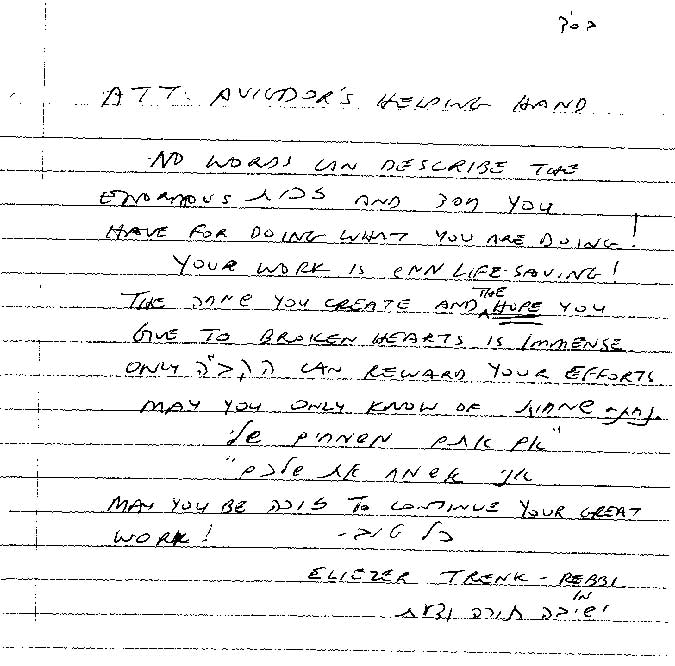 בס'ד
ATT: AVIGDOR'S HELPING HAND
NO WORDS CAN DESCRIBE THE
ENORMOUS זכות AND חסד YOU
HAVE FOR DOING WHAT YOU ARE DOING!
YOUR WORK IS ממש LIFE-SAVING!
THE שמחה YOU CREATE AND THE HOPE YOU
GIVE TO BROKEN HEARTS IS IMMENSE
ONLY הקב"ה CAN REWARD YOUR EFFORTS
MAY YOU ONLY KNOW OF
MAY YOU BE זוכה TO CONTINUE YOUR GREAT
WORK! כל טוב-
ELIEZER TRENK - REBBI
IN
ישיבה תורה ודעת